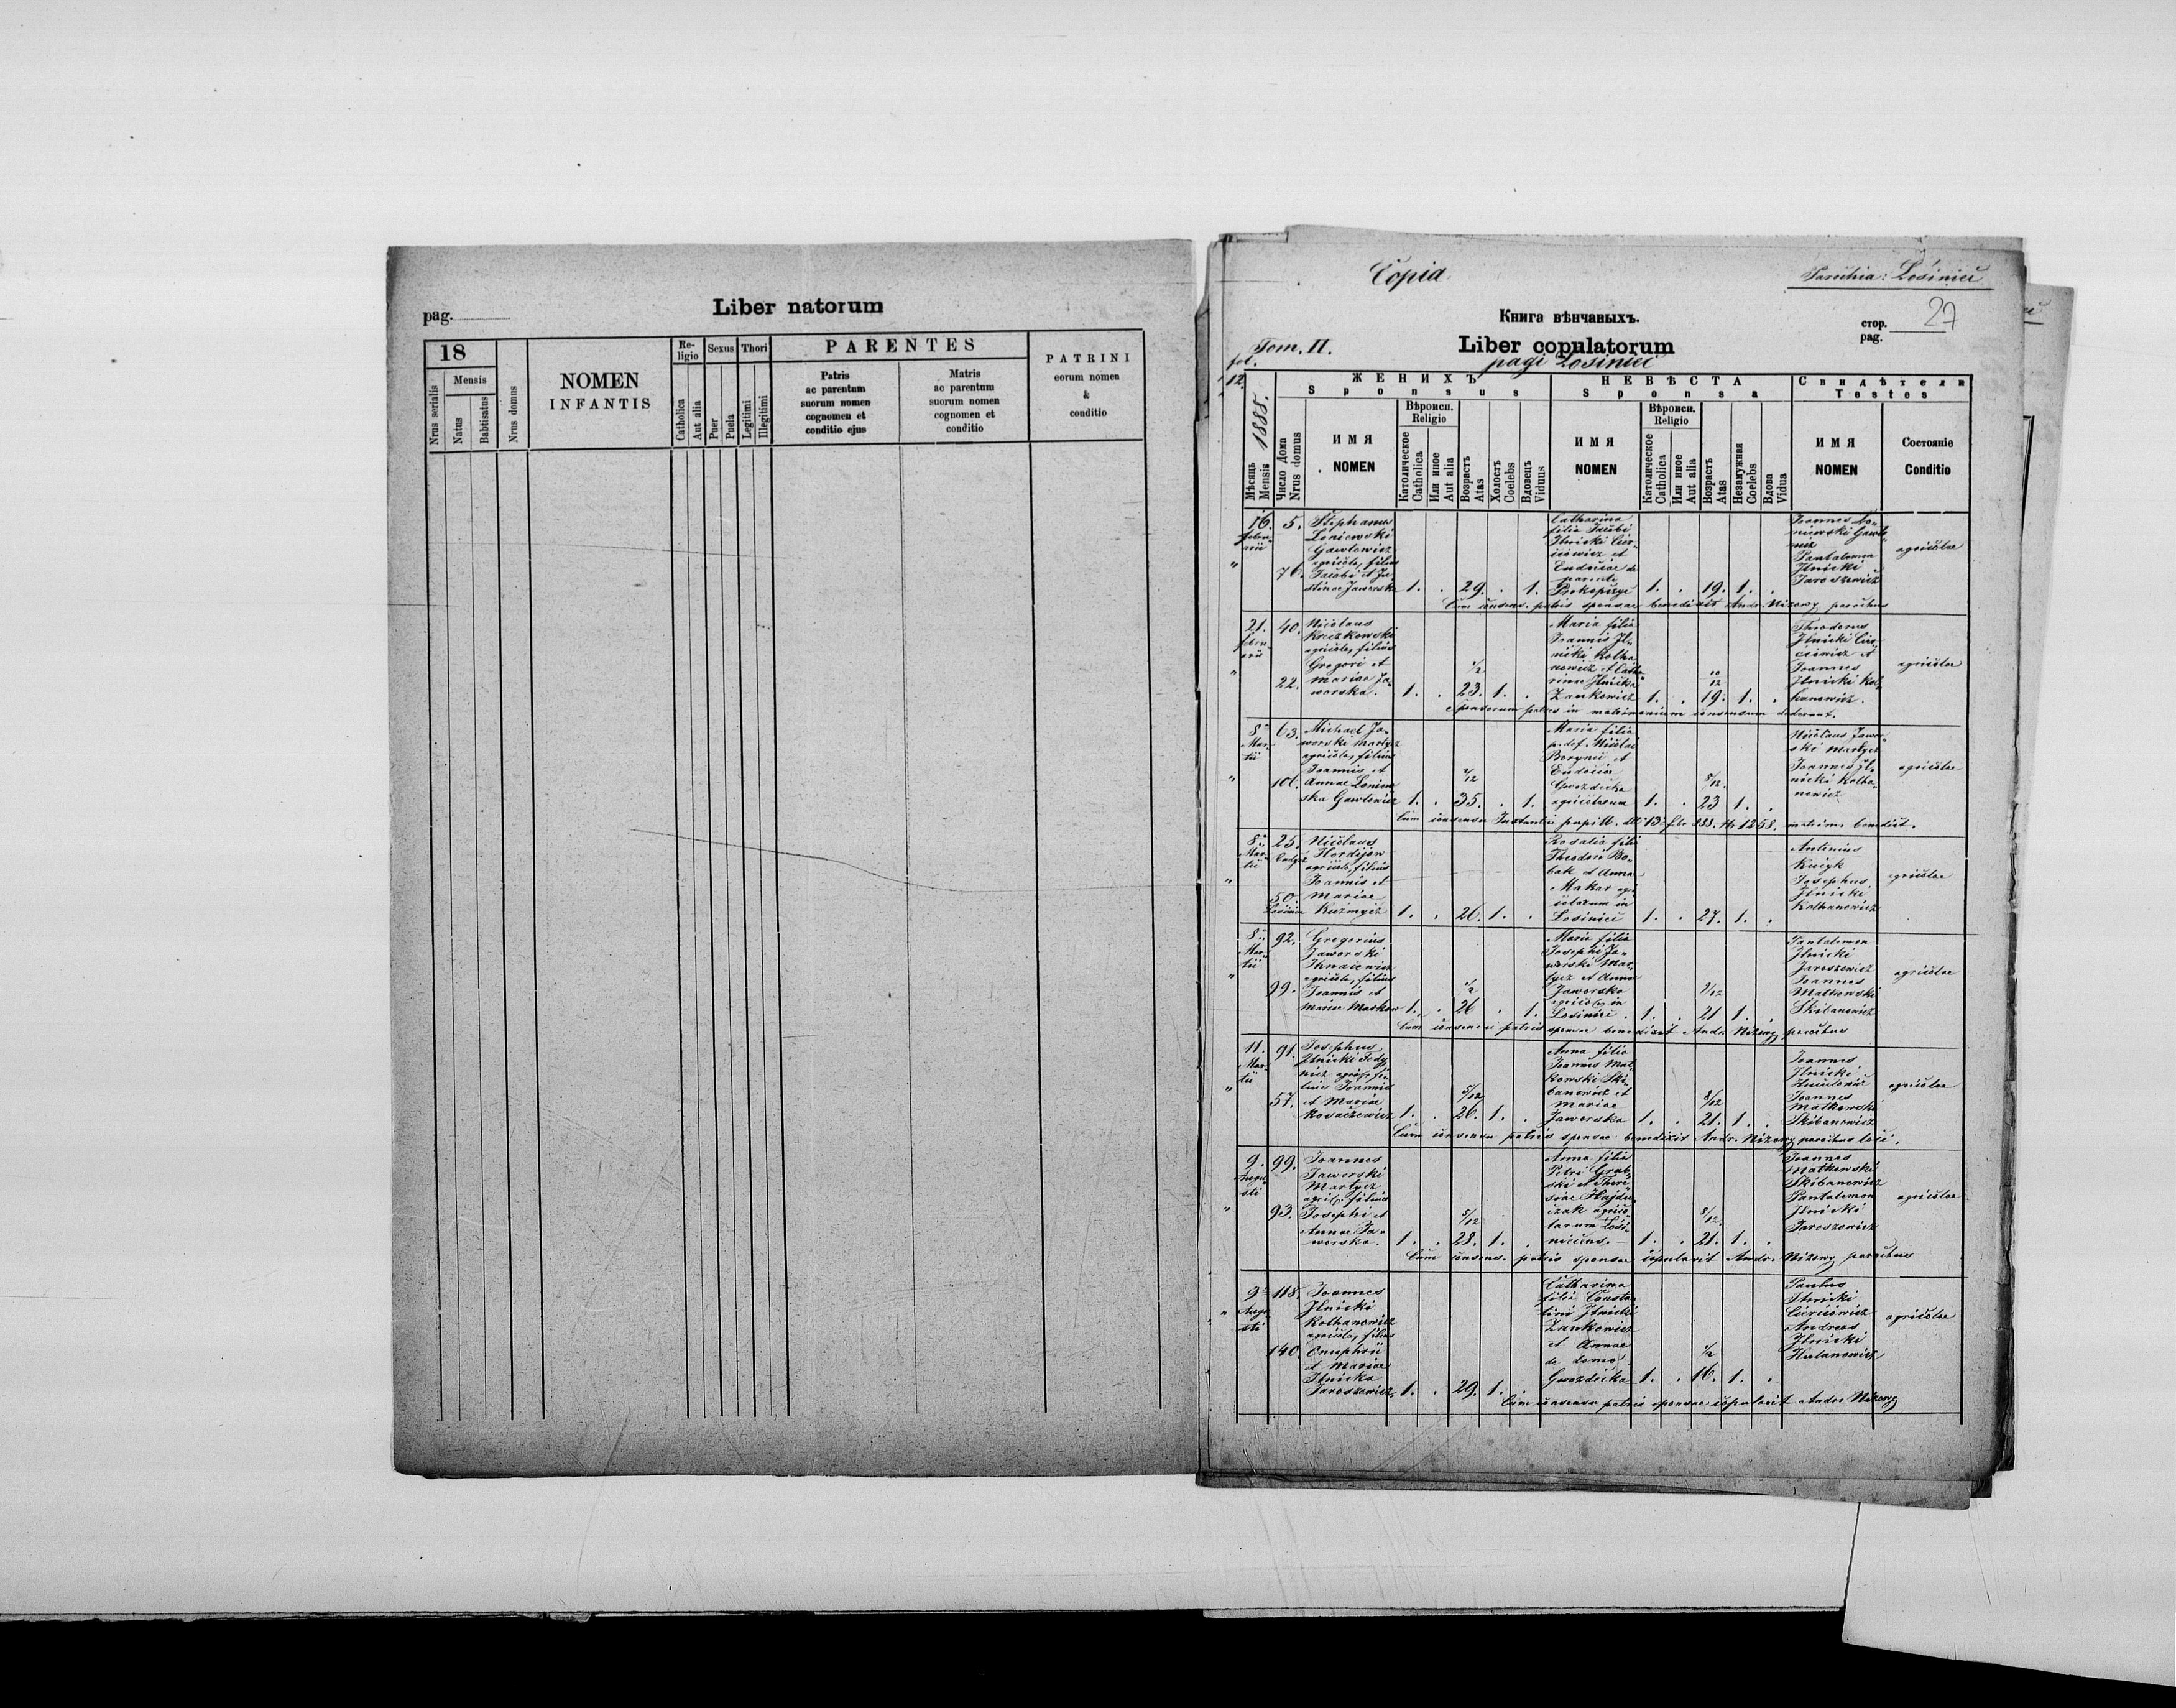 pag.
Liber natorum
18
Mensis
Nrus serialis
Natus
Babtisatus
Nrus domus
NOMEN
INFANTIS
Re-
ligio
Catholica
Aut alia
Sexus
Puer
Puela
Thori
Legitimi
Illegitimi
PARENTES
Patris
ac parentum
suorum nomen
cognomen et
conditio ejus
Matris
ac parentum
suorum nomen
cognomen et
conditio
PATRINI
eorum nomen
&
conditio
Copia
Parochia: Łosiniec
Книга вѣнчавыхъ.
стор.
pag.
27
Tom. II.
Liber copulatorum
pagi Łosiniec
fol.
12.
Мѣсяць
Mensis
1885.
Число Дома
Nrus domus
ЖЕНИХЪ
Sponsus
ИМЯ
NOMEN
Вѣроисп.
Religio
Католическое
Catholica
Или иное
Aut alia
Возрастъ
Atas
Холостъ
Coelebs
Вдовецъ
Viduus
НЕВѢСТА
Sponsa
ИМЯ
NOMEN
Вѣроисп.
Religio
Католическое
Catholica
Или иное
Aut alia
Возрастъ
Atas
Незамужная
Coelebs
Вдова
Vidua
Свидѣтели
Testes
ИМЯ
NOMEN
Состояніе
Conditio
16.
5.
76.
Stephanus
Łoniewski
Gawlewicz
agricola, filius
Jacobi et Ju-
stinae Jaworska
1. . 29. . 1.
Catharina
filia Jacobi
Ilnicki
Eudociae de
1. . 19. 1. .
Pantalemon
Ilnicki
Jaroszewicz
agricolae
Cum consens. patris sponsae benedixit Andr. Niżowy parochus
21.
40.
22.
Nicolaus
agricola, filius
Gregori et
Mariae Ja-
worska.
1/2
1. . 23. 1. .
Maria filia
Joannis Il-
nicki Kolha
nowicz et Catha-
rinae Ilnicka
Zankowicz
10
12
1. . 19. 1. .
Theodorus
Ilnicki
Joannes
Ilnicki Kol-
hanowicz.
agricolae
Sponsorum patres in matrimonium consensum dederunt.
8
Mar-
tii
63.
106.
Michael Ja-
worski Martycz
agricola, filius
Joannis et
Annae Łoniew
ska Gawlewicz
1. . 35. . 1.
Maria filia
p. def. Nicolai
Boryncz et
Eudocia
Gwozdecka
agricolarum
8/12.
1. . 23 1. .
Nicolaus Jawor-
ski Martycz
Joannes Il-
nicki Kolha-
nowicz
agricolae
8
Mar-
tii
25.
50.
Nicolaus
Hordijow
agricola, filius
Joannis et
Mariae
Kuźmycz
1. . 26. 1. .
Rosalia filia
Theodori Bo-
bak et Annae
Makar agri
colarum in
Łosiniec
1. . 27. 1. .
Antonius
Josephus
Ilnicki
Kolhanowicz
agricolae
8
Mar-
tii
92.
99.
Gregorius
Jaworski
agricola, filius
Joannis et
Mariae
1/2
1. . 26 . 1.
Maria filia
Josephi Ja-
worski Mar-
tycz et Annae
Jaworska
Łosiniec.
1. . 21 1. .
Pantalemon
Ilnicki
Jaroszewicz
Joannes
Matkowski
Skibanowicz
agricolae
Cum consensu patris sponsae benedixit Andr. Niżowy, parochus
11.
Mar-
tii
91.
57.
Josephus
Ilnicki Fedy-
lius Joannis
et Mariae
Kosaczewicz
5/12
1. . 26. 1. .
Anna filia
Joannis Mat
kowski Ski-
banowicz et
Mariae
Jaworska
8/12
1. . 21. 1. .
Joannes
Ilnicki
Joannes
Matkowski
Skibanowicz
agricolae
Cum consensu patris sponsae benedixit Andr. Niżowy parochus loci.
9.
Augu-
sti
99.
93.
Joannes
Jaworski
Martycz
filius
Josephi et
Annae Ja-
worska.
5/12
1. . 28. 1. .
Anna filia
Petri Grab-
ski et There-
siae Hajdu-
czak agrico-
larum
8/12.
1. . 21. 1. .
Joannes
Matkowski
Skibanowicz
Pantalemon
Ilnicki
Jaroszewicz
agricolae
Cum consens. patris sponsae copulavit Andr. Niżowy parochus
9
Augu-
sti
118.
140.
Joannes
Ilnicki
Kolhanowicz
agricola, filius
Onuphrii
et Mariae
Ilnicka
Jaroszewicz
1. . 29. 1. .
Catharina
filia Consta-
tini Ilnicki
Zankowicz
et Annae
de domo
Gwozdecka
1/2
1. . 16. 1. .
Paulus
Ilnicki
Andreas
Ilnicki
Hulanowicz
agricolae
Cum consensu patris sponsae copulavit Andr. Niżowy